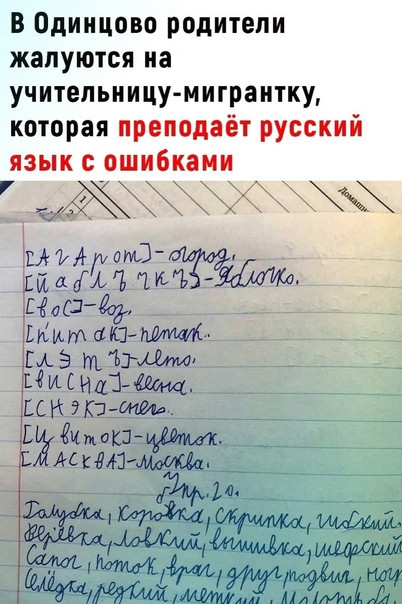 В Одинцово родители
жалуются на
учительницу-мигрантку,
которая преподаёт русский
язык с ошибками
[АгАрот]-огород.
[йаблЪчкЪ]-Яблочко.
[вос]-воз.
[п'итак]-петак.
[лЭтЪ]-лето.
[виСНа]-весна.
[СНЭК]-снег.
[Цвиток]-цветок.
[МАСКВА]-Москва.
Упр. 20.
Голубка, коровка, скрипка, гибкий.
Верёвка, ловкий, вышивка, шефский
Сапог, поток, враг, друг, подвиг,
Селёдка, редкий, меткий,